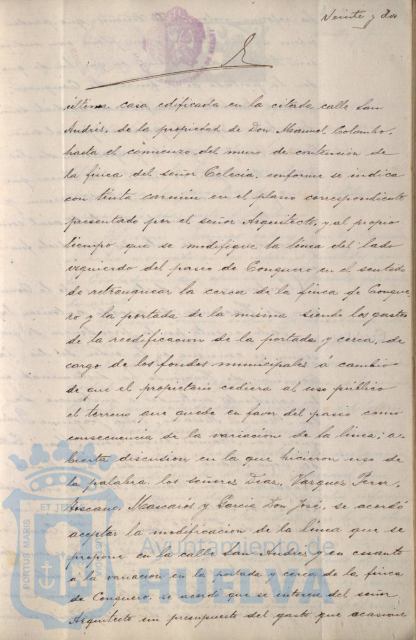 Veinte y dos
última casa edificada en la citada calle San
Andrés, de la propiedad de Don Manuel Colombo,
hasta el comienzo del muro de contención de
la finca del señor Eclecia, conforme se indica
con tinta carmín en el plano correspondiente
presentado por el señor Arquitecto, y al propio
tiempo que se modifique la línea del lado
izquierdo del paseo de Conquero en el sentido
de retranquear la cerca de la finca de Conque-
ro y la portada de la misma siendo los gastos
de la reedificación de la portada y cerca, de
cargo de los fondos municipales á cambio
de que el propietario cediera al uso público
el terreno que quede en favor del paseo como
consecuencia de la variación de la línea; a-
bierta discusión en la que hicieron uso de
la palabra los señores Díaz, Vázquez Pérez,
Mascarós y García Don José, se acordó
aceptar la modificación de la línea que se
propone en la calle San Andrés y en cuanto
a la variación en la portada y cerca de la finca
de Conquero, se acordó que se interese del señor
Arquitecto un presupuesto del gasto que ocasione
PORTUS MARIS ET
Ayuntamiento de
HUELVA